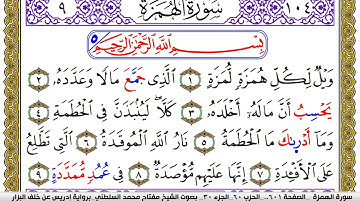 ٩ سُورَةُ الهُمَزَةِ ١٠٤
بِسْمِ اللَّهِ الرَّحْمَٰنِ الرَّحِيمِ ٥
وَيْلٌ لِّكُلِّ هُمَزَةٍ لُّمَزَةٍ ١ الَّذِي جَمَّعَ مَالًا وَعَدَّدَهُ ٢
يَحْسِبُ أَنَّ مَالَهُ أَخْلَدَهُ ٣ كَلَّا لَيُنبَذَنَّ فِي الْحُطَمَةِ ٤
وَمَا أَدْرِىٰكَ مَا الْحُطَمَةُ ٥ نَارُ اللَّهِ الْمُوقَدَةُ ٦ الَّتِي تَطَّلِعُ
عَلَى الْأَفْئِدَةِ ٧ إِنَّهَا عَلَيْهِم مُّؤْصَدَةٌ ٨ فِي عُمُدٍ مُّمَدَّدَةٍ ٩
سورة الهمزة الصفحة ٦٠١... الحزب ٦٠ الجزء ٣٠ . بصوت الشيخ مفتاح محمد السلطني برواية إدريس عن خلف البزار